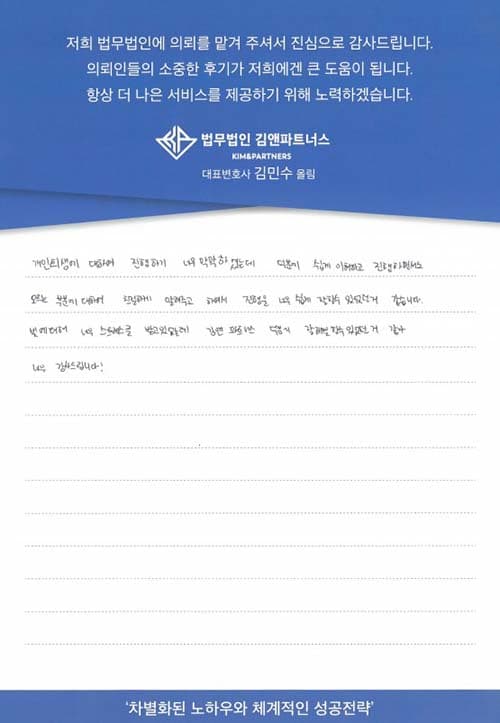 저희 법무법인에 의뢰를 맡겨 주셔서 진심으로 감사드립니다.
의뢰인들의 소중한 후기가 저희에겐 큰 도움이 됩니다.
항상 더 나은 서비스를 제공하기 위해 노력하겠습니다.
법무법인 김앤파트너스
KIM&PARTNERS
대표변호사 김민수 올림
개인회생에 대하여 진행하기 너무 막막하였는데 덕분에 쉽게 이해하고 진행하면서도
모르는 부분에 대하여 친절하게 알려주고 하여서 진행을 너무 쉽게 할수 있었던거 같습니다.
빚에대해 너무 스트레스를 받고있었는데 김앤 파트너스 덕분에 수 있었던 거 같아
너무 감사드립니다!
'차별화된 노하우와 체계적인 성공전략'